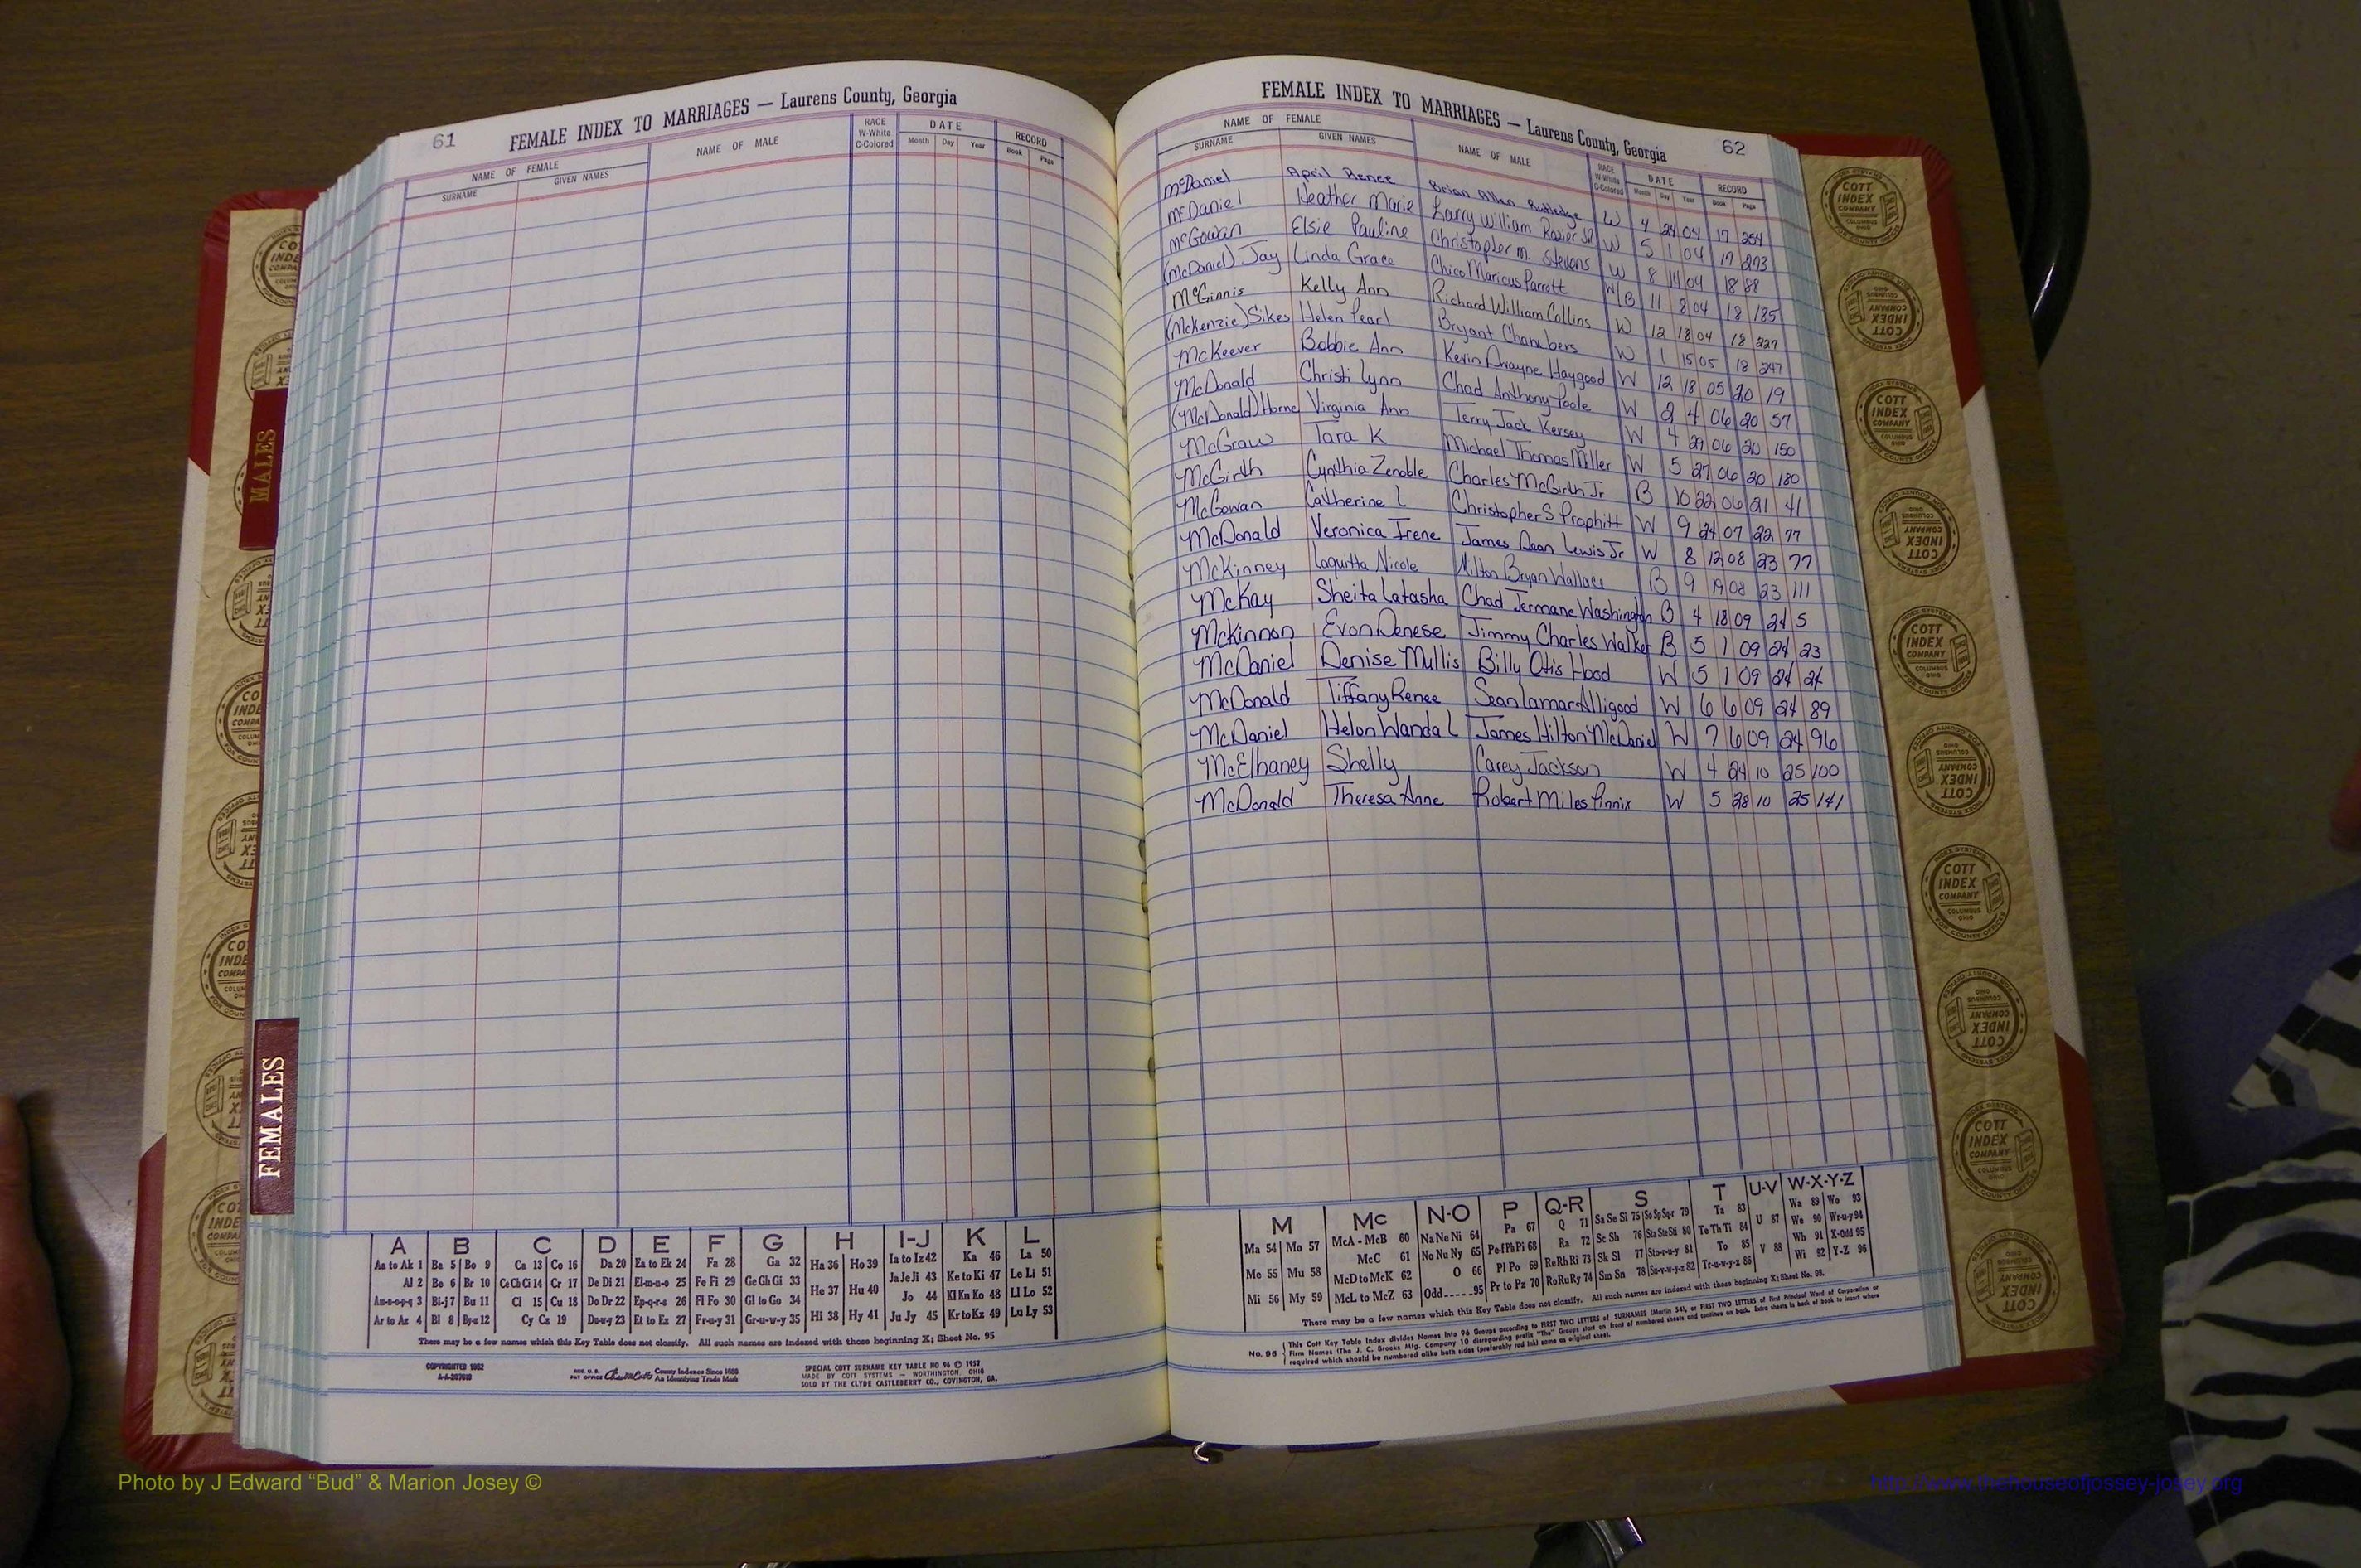 61
FEMALE INDEX TO MARRIAGES — Laurens County, Georgia
NAME OF FEMALE
SURNAME GIVEN NAMES
NAME OF MALE
RACE W-White C-Colored
DATE
Month Day Year
RECORD
Book Page
MALES
FEMALES
A
B
C
D
E
F
G
H
I-J
K
L
Aa to Ak 1 Ba 5 Bo 9 Ca 13 Co 16 Da 20 Ea to Ek 24 Fa 28 Ga 32 Ha 36 Ho 39 Ia to Iz 42 Ka 46 La 50
Al 2 Be 6 Br 10 Ce Ch Ci 14 Cr 17 De Di 21 El-m-n-o 25 Fe Fi 29 Ge Gh Gi 33 He 37 Hu 40 Ja Je Ji 43 Ke to Ki 47 Le Li 51
Am-n-o-p-q 3 Bi-j 7 Bu 11 Cl 15 Cu 18 Do Dr 22 Ep-q-r-s 26 Fl Fo 30 Gl to Go 34 Jo 44 Kl Kn Ko 48 Ll Lo 52
Ar to Az 4 Bl 8 By-z 12 Cy Cz 19 Du-w-y 23 Et to Ez 27 Fr-u-y 31 Gr-u-w-y 35 Hi 38 Hy 41 Ju Jy 45 Kr to Kz 49 Lu Ly 53
There may be a few names which this Key Table does not classify. All such names are indexed with those beginning X; Sheet No. 95
COPYRIGHTED 1952
County Indexes Since 1888
An Identifying Trade Mark
SPECIAL COTT SURNAME KEY TABLE NO 96 © 1957
MADE BY COTT SYSTEMS — WORTHINGTON, OHIO
SOLD BY THE CLYDE CASTLEBERRY CO., COVINGTON, GA.
FEMALE INDEX TO MARRIAGES — Laurens County, Georgia
62
NAME OF FEMALE
SURNAME GIVEN NAMES
NAME OF MALE
RACE W-White C-Colored
DATE
Month Day Year
RECORD
Book Page
McDaniel April Renee Brian Allen Rutledge W 4 24 04 17 254
McDaniel Heather Marie Larry William Rozier SR W 5 1 04 17 273
McGowan Elsie Pauline Christopher M. Stevens W 8 14 04 18 88
(McDaniel) Jay Linda Grace Chico Maricus Parrott W/B 11 8 04 18 185
McGinnis Kelly Ann Richard William Collins W 12 18 04 18 227
(McKenzie) Sikes Helen Pearl Bryant Chambers W 1 15 05 18 247
McKeever Bobbie Ann Kevin Dwayne Haygood W 12 18 05 20 19
McDonald Christi Lynn Chad Anthony Poole W 2 4 06 20 57
(McDonald) Horne Virginia Ann Terry Jack Kersey W 4 29 06 20 150
McGraw Tara K Michael Thomas Miller W 5 27 06 20 180
McGirth Cynthia Zenoble Charles McGirth Jr B 10 22 06 21 41
McGowan Catherine L Christopher S Prophitt W 9 24 07 22 77
McDonald Veronica Irene James Dean Lewis Jr W 8 12 08 23 77
McKinney Laqurtta Nicole Milton Bryan Wallace B 9 19 08 23 111
McKay Sheita Latasha Chad Jermane Washington B 4 18 09 24 5
McKinnon Evon Denese Jimmy Charles Walker B 5 1 09 24 23
McDaniel Denise Mullis Billy Otis Hood W 5 1 09 24 24
McDonald Tiffany Renee Sean Lamar Alligood W 6 6 09 24 89
McDaniel Helon Wanda L James Hilton McDaniel W 7 6 09 24 96
McElhaney Shelly Carey Jackson W 4 24 10 25 100
McDonald Theresa Anne Robert Miles Pinnix W 5 28 10 25 141
M
Mc
N-O
P
Q-R
S
T
U-V
W-X-Y-Z
Ma 54 Mo 57 McA - McB 60 Na Ne Ni 64 Pa 67 Q 71 Sa Se Si 75 So Sp Sq-r 79 Ta 83 U 87 Wa 89 Wo 93
Me 55 Mu 58 McC 61 No Nu Ny 65 Pe-f Ph Pi 68 Ra 72 Sc Sh 76 Sta Ste Sti 80 Te Th Ti 84 We 90 Wr-u-y 94
McD to McK 62 O 66 Pl Po 69 Re Rh Ri 73 Sk Sl 77 Sto-r-u-y 81 To 85 V 88 Wh 91 X-Odd 95
Mi 56 My 59 McL to McZ 63 Odd-----95 Pr to Pz 70 Ro Ru Ry 74 Sm Sn 78 Su-v-w-y-z 82 Tr-u-w-y-z 86 Wi 92 Y-Z 96
There may be a few names which this Key Table does not classify. All such names are indexed with those beginning X; Sheet No. 95.
No. 96
This Cott Key Table Index divides Names into 96 Groups according to FIRST TWO LETTERS of SURNAMES (Martin 54), or FIRST TWO LETTERS of First Principal Word of Corporation or
Firm Names (The J. C. Brooks Mfg. Company 10 disregarding prefix "The" Groups start on front of numbered sheets and continue on back. Extra sheets in back of book to insert where
required which should be numbered alike both sides (preferably red ink) same as original sheet.
COTT INDEX COMPANY
COLUMBUS OHIO
INDEX SYSTEMS
FOR COUNTY OFFICES
Photo by J Edward “Bud” & Marion Josey ©
http://www.thehouseofjossey-josey.org